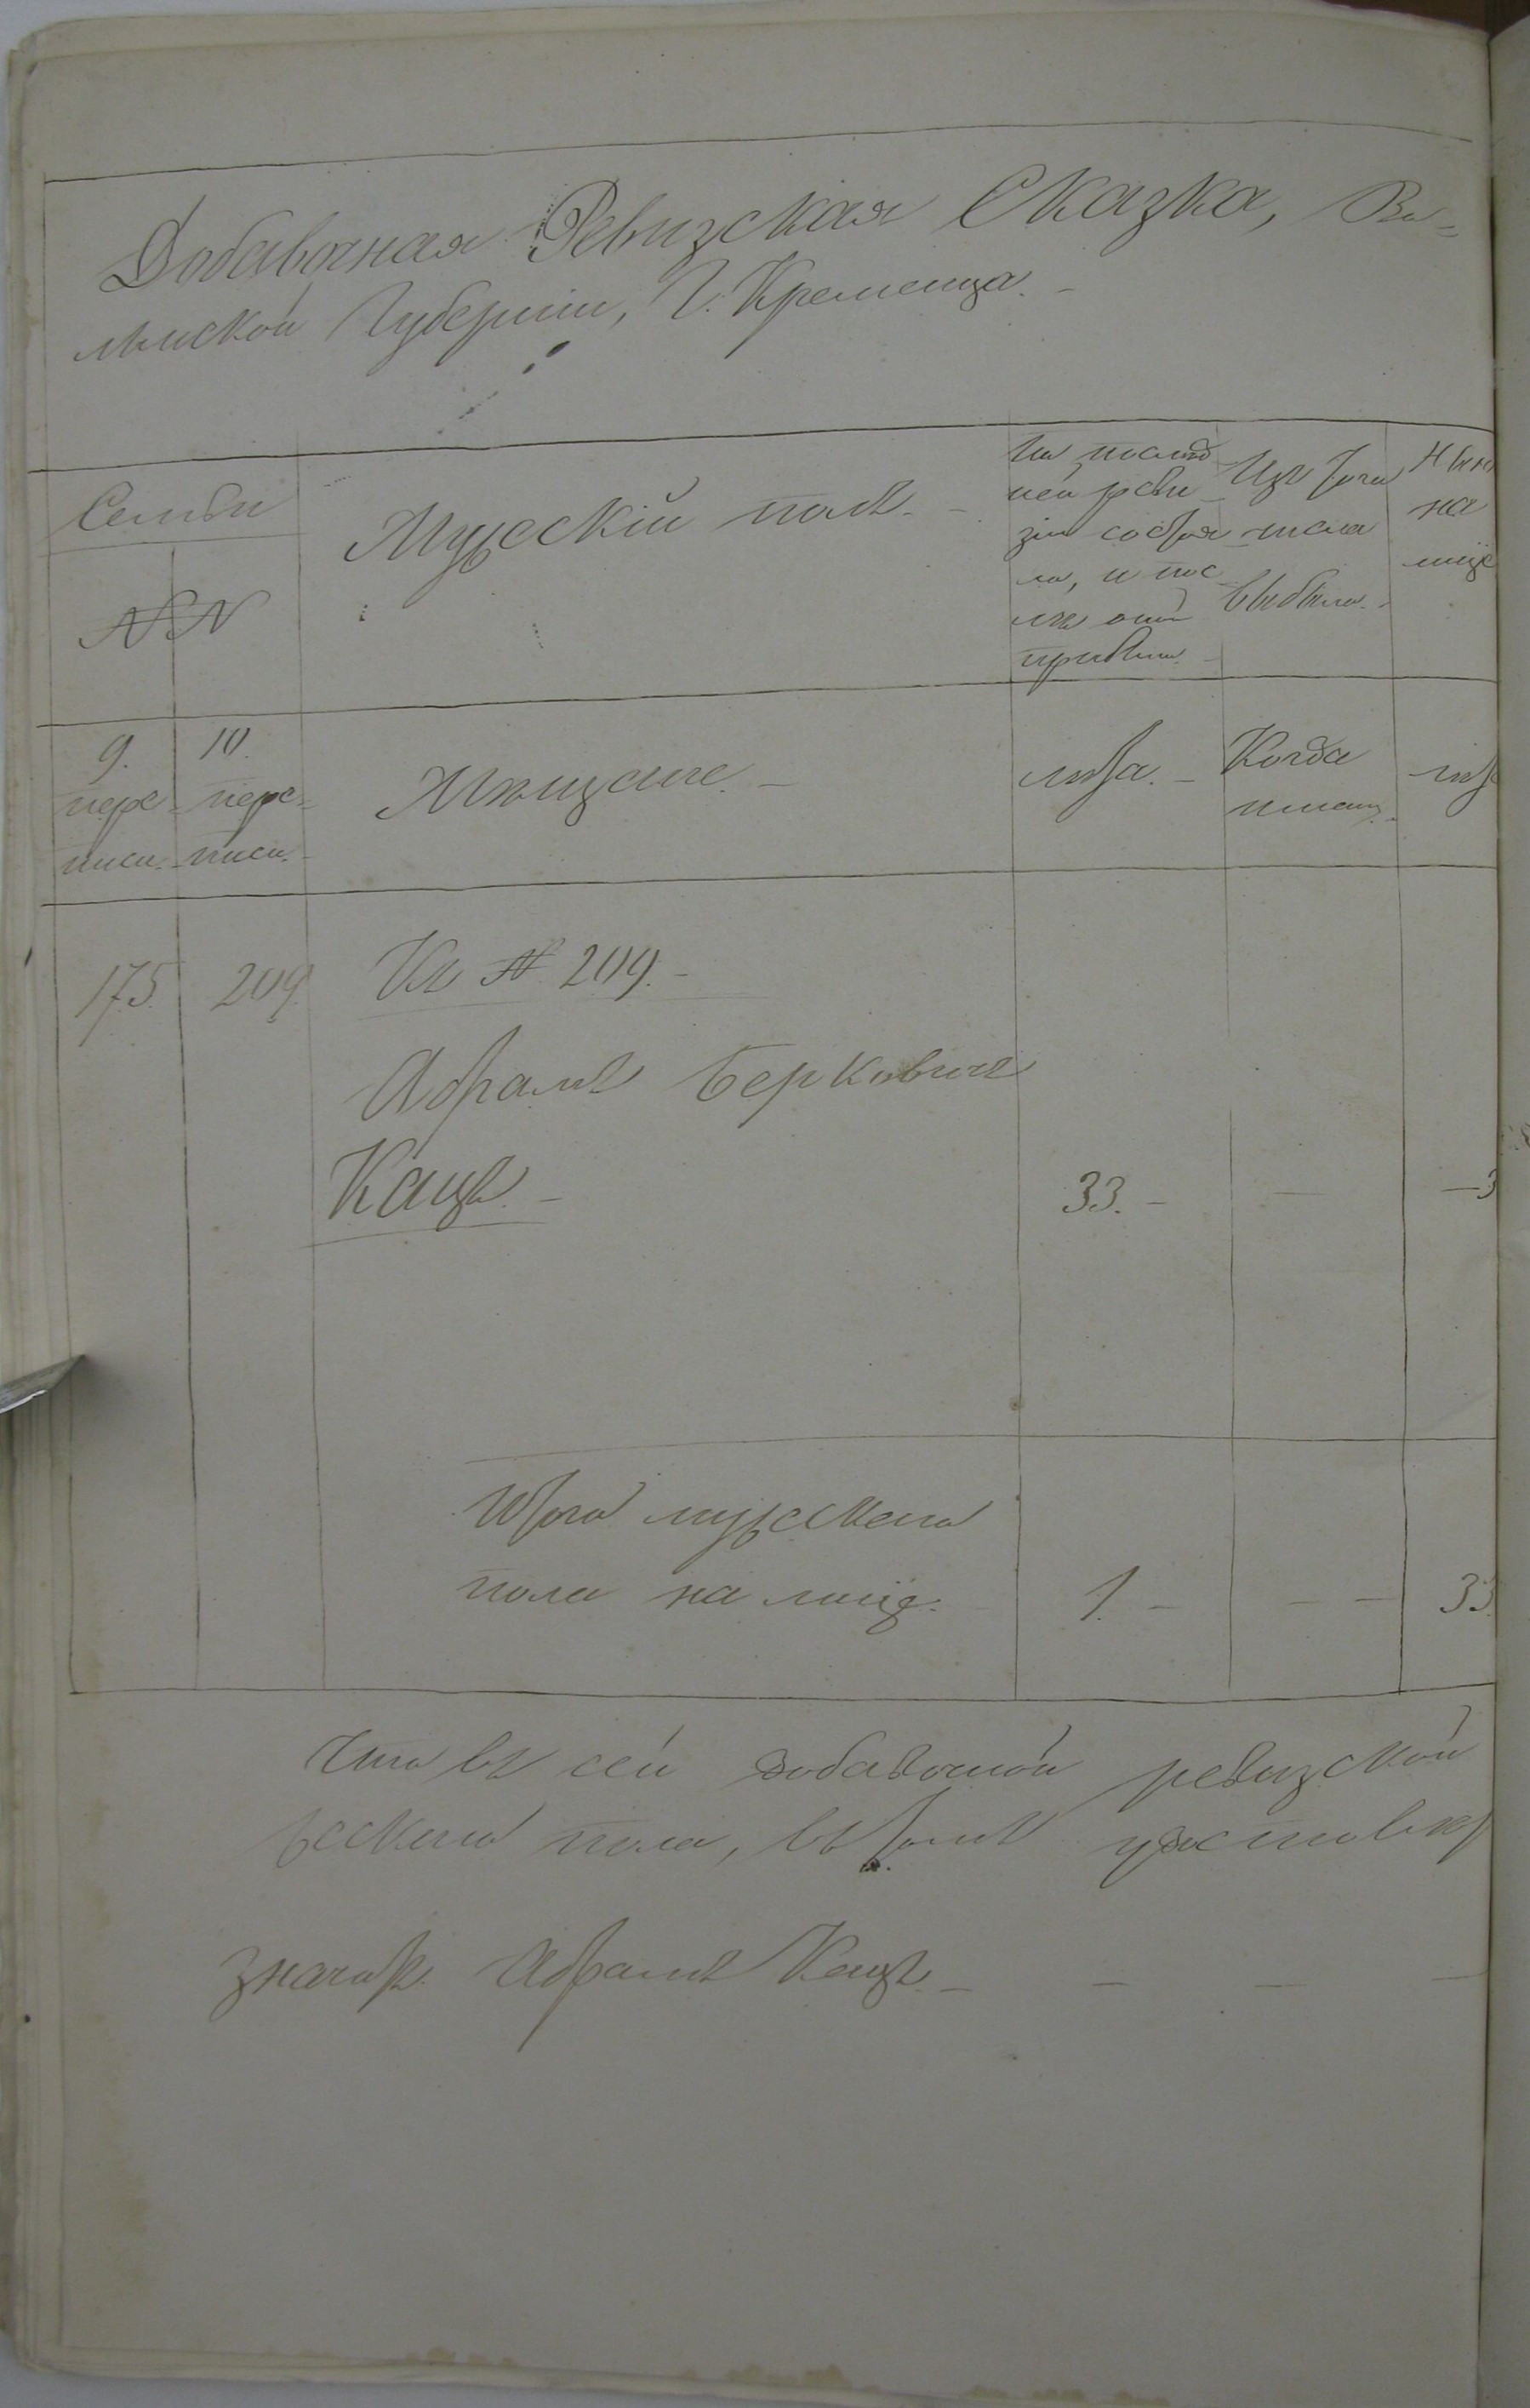 Добавочная Ревизская Сказка, Во=
лынской Губерніи, Г. Кременца. -
Семьи
NN
Мужескій полъ. -
По послѣд
ней реви
зіи состоя
ло, и пос
лѣ оной
прибыло. -
Изъ того
числа
выбыло. -
Нын
на
лице
9.
пере=
писи. -
10.
пере=
писи. -
Мѣщане. -
лѣта. -
Когда
именно.
лѣт
175.
209.
Къ N 209. -
Абрамъ Берковичъ
Кацъ. -
33. -
—
— 3
Итого мужескаго
пола на лице.
1. -
— —
33.
Что въ сей добавочной ревизской
жескаго пола, въ томъ удостовер
Абрамъ Кацъ. — — — —